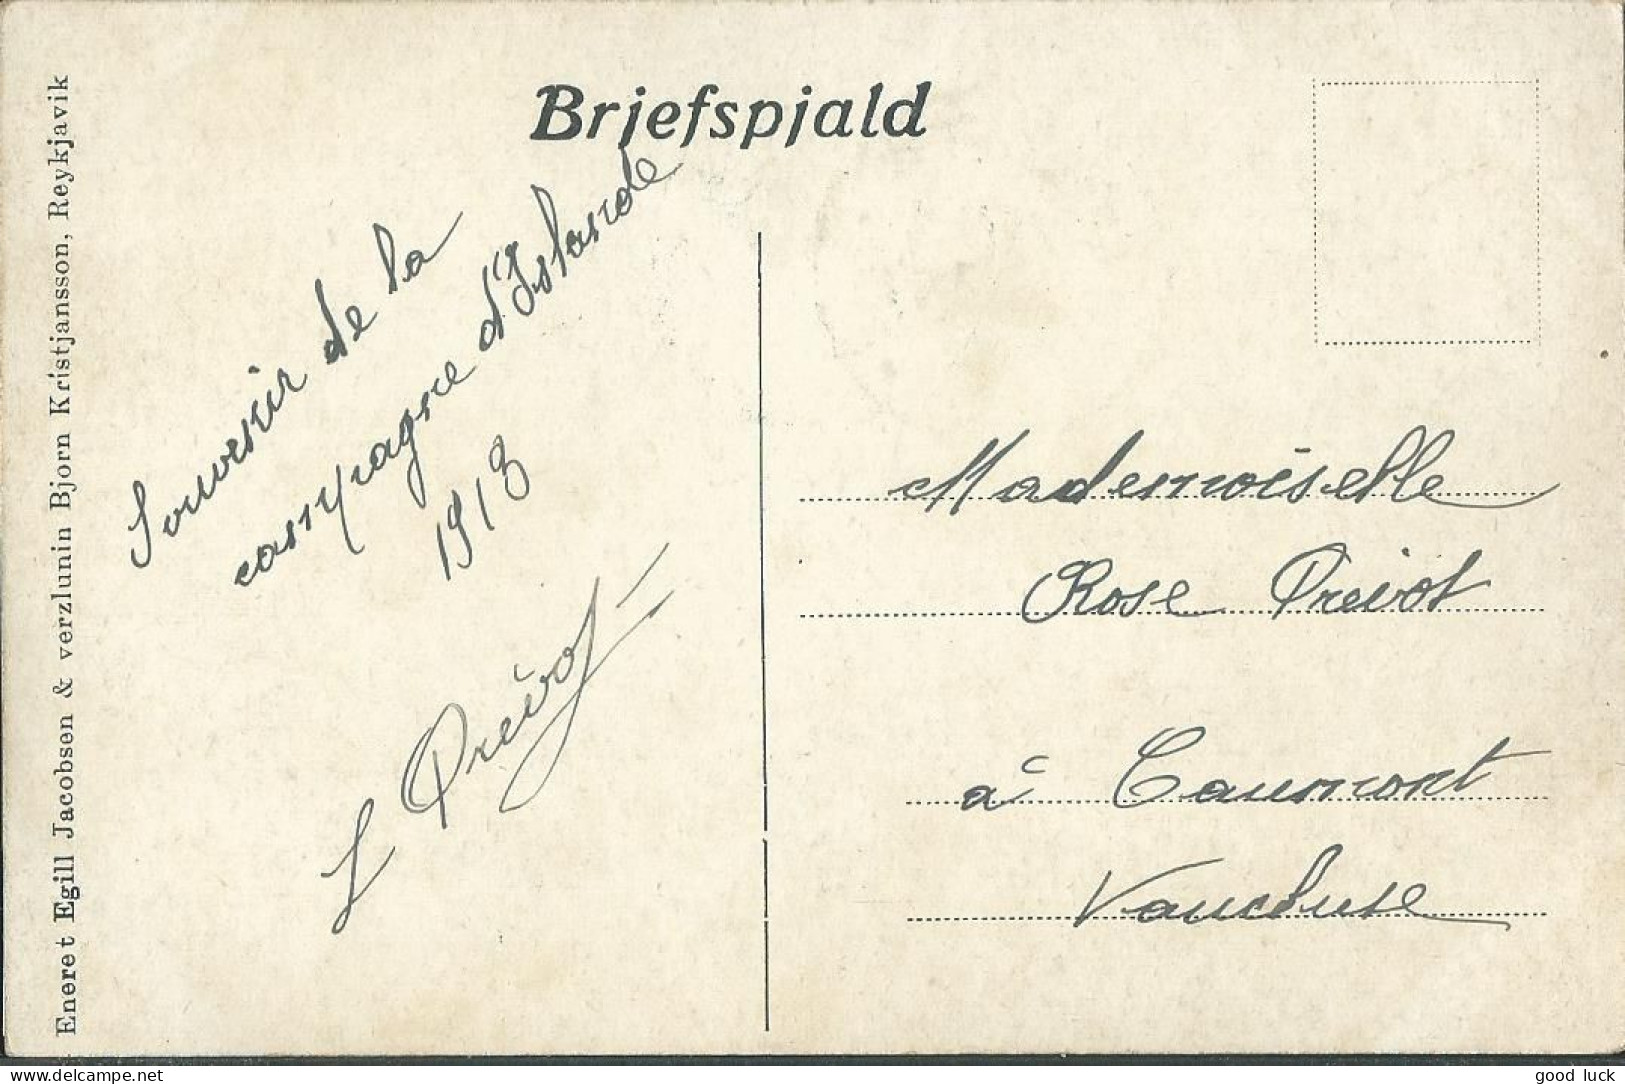 Brjefspjald
Eneret Egill Jacobsen & verzlunin Bjorn Kristjansson, Reykjavik
Souvenir de la
campagne d'Islande
1913
L Prévot
Mademoiselle
Rose Prévot
à Caumont
Vaucluse
www.delcampe.net
good luck